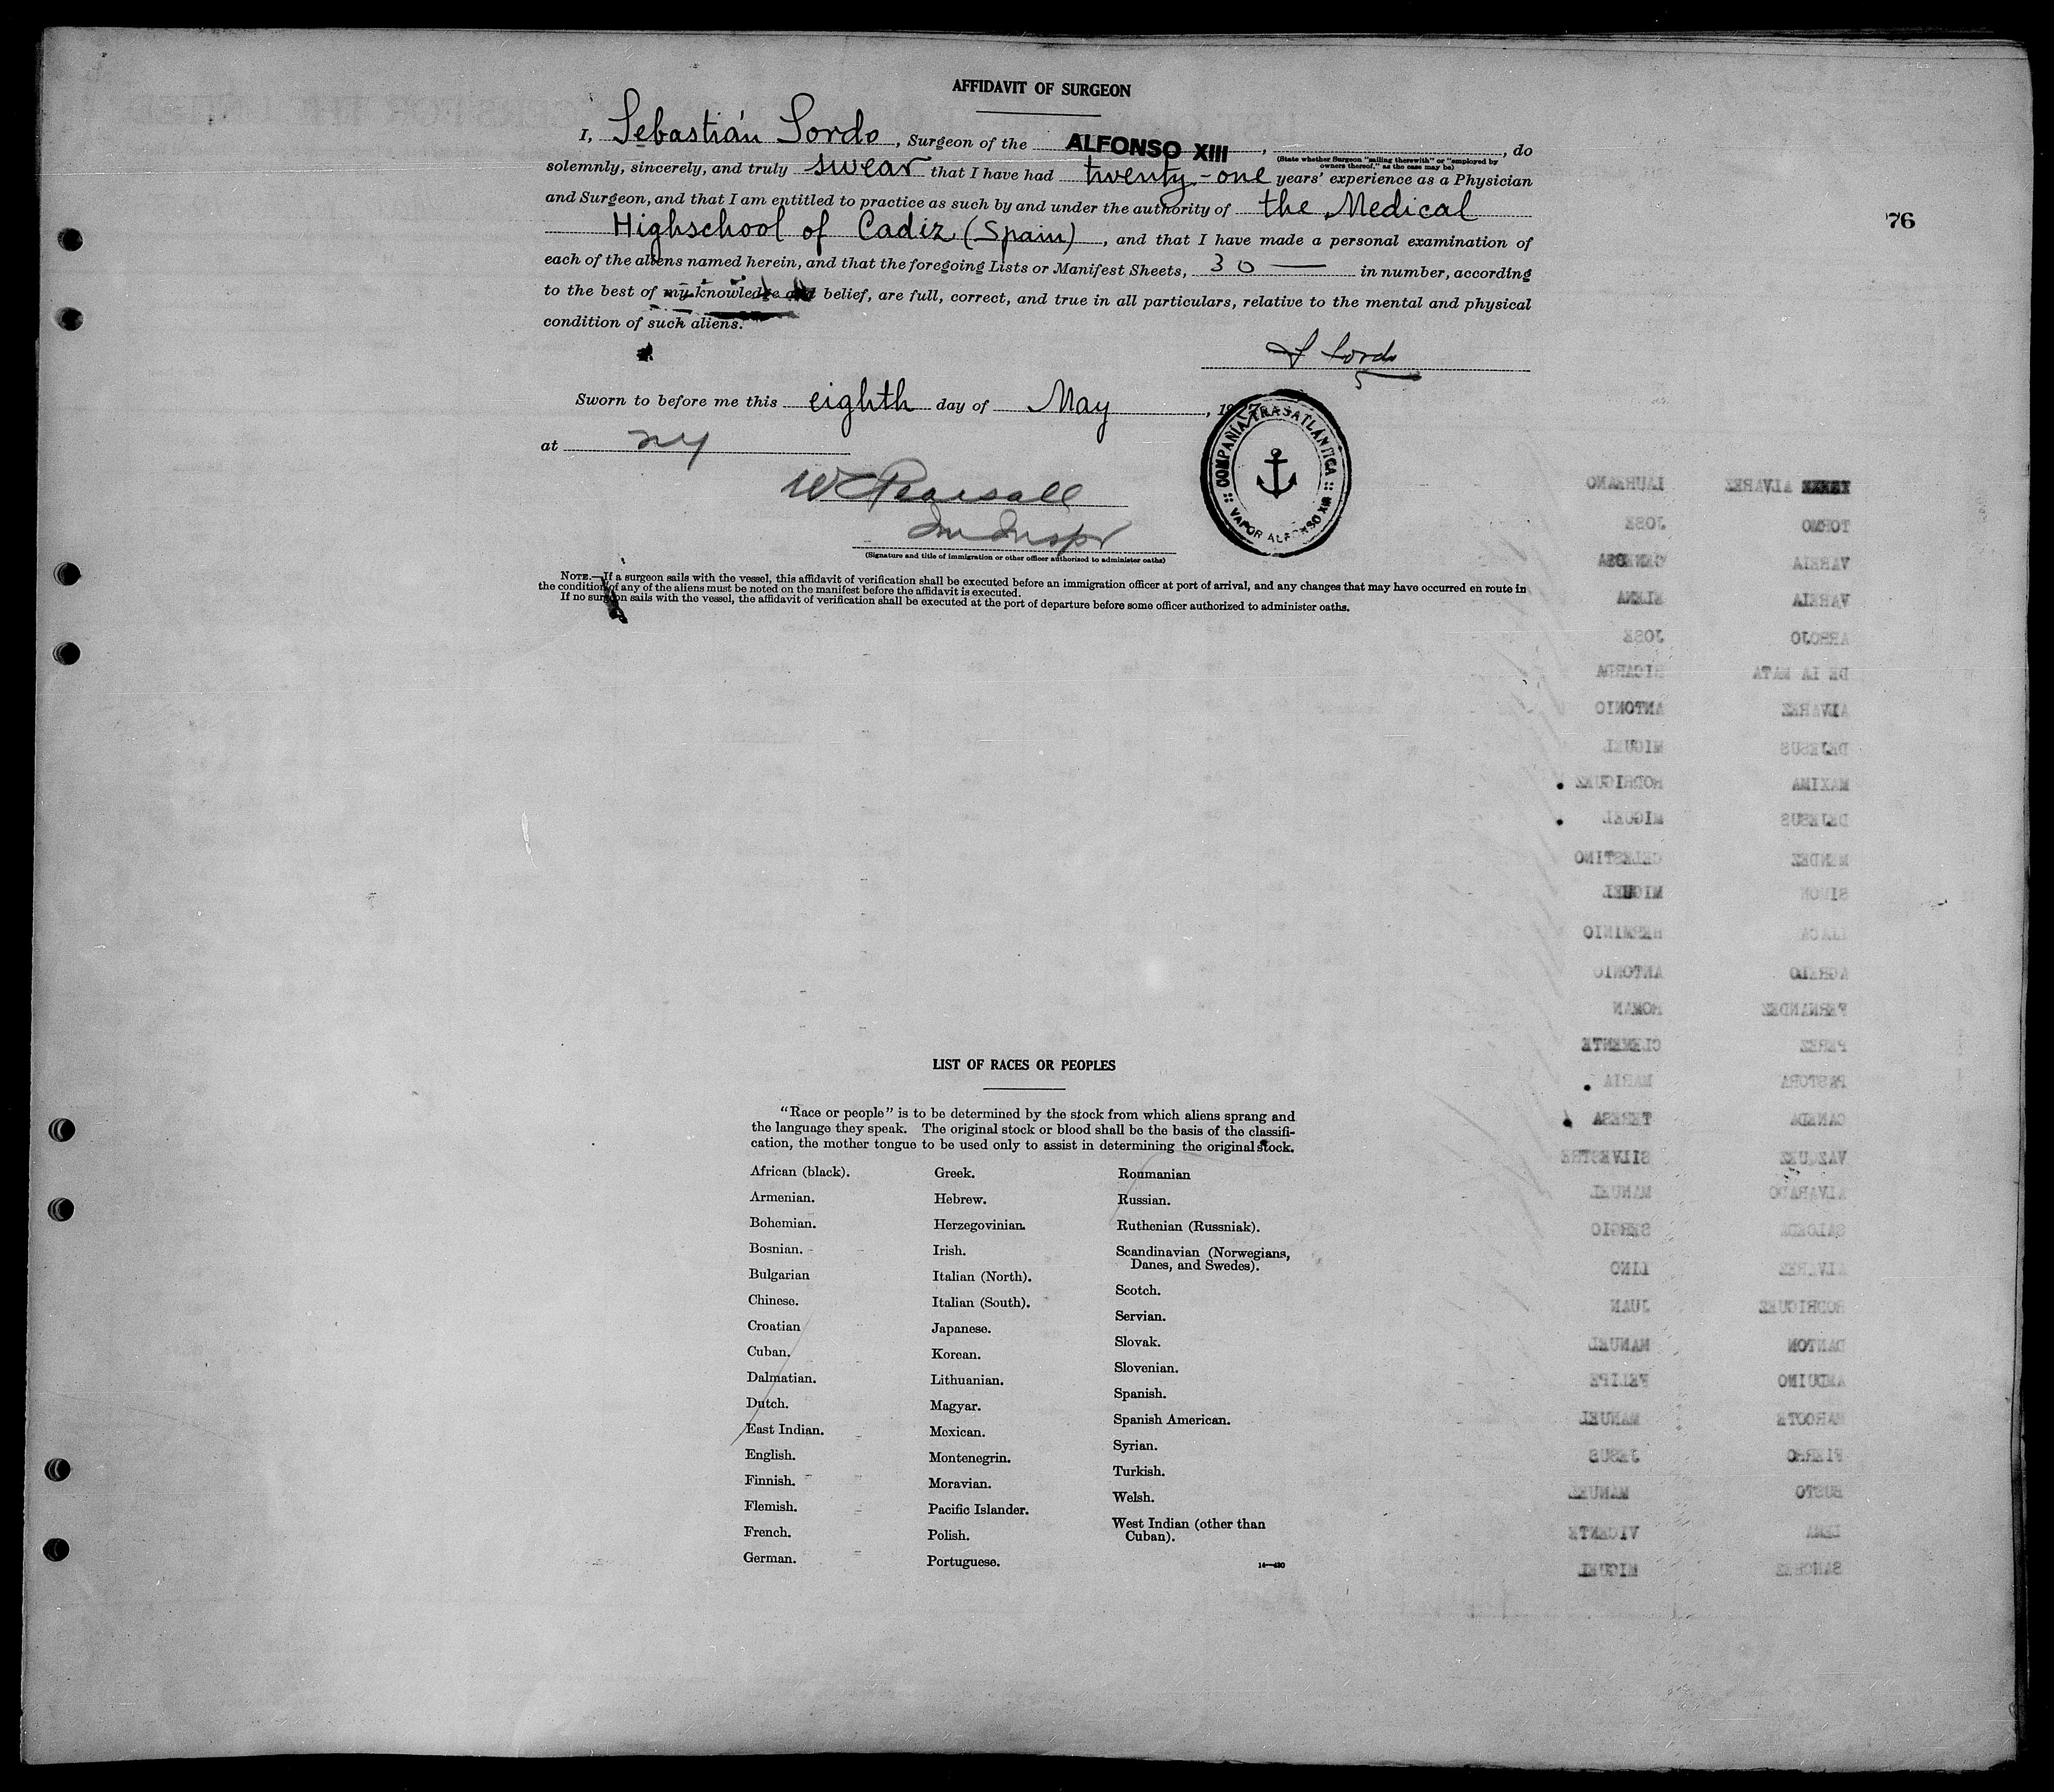 AFFIDAVIT OF SURGEON
I, Sebastián Sordo, Surgeon of the ALFONSO XIII, , do
(State whether Surgeon "sailing therewith" or "employed by
owners thereof," as the case may be)
solemnly, sincerely, and truly swear that I have had twenty-one years' experience as a Physician
and Surgeon, and that I am entitled to practice as such by and under the authority of the Medical
Highschool of Cadiz (Spain), and that I have made a personal examination of
76
each of the aliens named herein, and that the foregoing Lists or Manifest Sheets, 30 — in number, according
to the best of my knowledge and belief, are full, correct, and true in all particulars, relative to the mental and physical
condition of such aliens.
S Sordo
Sworn to before me this eighth day of May, 19
at NY
COMPAÑIA TRASATLÁNTICA
VAPOR ALFONSO XIII
W Pearsall
Im Inspr
(Signature and title of immigration or other officer authorized to administer oaths)
NOTE.—If a surgeon sails with the vessel, this affidavit of verification shall be executed before an immigration officer at port of arrival, and any changes that may have occurred en route in
the condition of any of the aliens must be noted on the manifest before the affidavit is executed.
If no surgeon sails with the vessel, the affidavit of verification shall be executed at the port of departure before some officer authorized to administer oaths.
ALVAREZ LAUREANO
TORMO JOSE
VARELA
VARELA ELENA
ARROJO JOSE
DE LA MATA RICARDA
ALVAREZ ANTONIO
DEJESUS MIGUEL
MAXIMA RODRIGUEZ
DEJESUS MIGUEL
MENDEZ CELESTINO
SIMON MIGUEL
HERMINIO
AGRELO ANTONIO
FERNANDEZ ROMAN
PEREZ CLEMENTE
PASTORA MARIA
CANEDA TERESA
VAZQUEZ SILVESTRE
ALVARADO MANUEL
SALGEDE SERGIO
ALVAREZ LINO
RODRIGUEZ JUAN
DANTON MANUEL
ANDUINO FELIPE
MANUEL
FIERRO JESUS
BUSTO MANUEL
VICENTE
SANCHEZ MIGUEL
LIST OF RACES OR PEOPLES
"Race or people" is to be determined by the stock from which aliens sprang and
the language they speak. The original stock or blood shall be the basis of the classifi-
cation, the mother tongue to be used only to assist in determining the original stock.
African (black).
Armenian.
Bohemian.
Bosnian.
Bulgarian
Chinese.
Croatian
Cuban.
Dalmatian.
Dutch.
East Indian.
English.
Finnish.
Flemish.
French.
German.
Greek.
Hebrew.
Herzegovinian.
Irish.
Italian (North).
Italian (South).
Japanese.
Korean.
Lithuanian.
Magyar.
Mexican.
Montenegrin.
Moravian.
Pacific Islander.
Polish.
Portuguese.
Roumanian
Russian.
Ruthenian (Russniak).
Scandinavian (Norwegians,
Danes, and Swedes).
Scotch.
Servian.
Slovak.
Slovenian.
Spanish.
Spanish American.
Syrian.
Turkish.
Welsh.
West Indian (other than
Cuban).
14—430